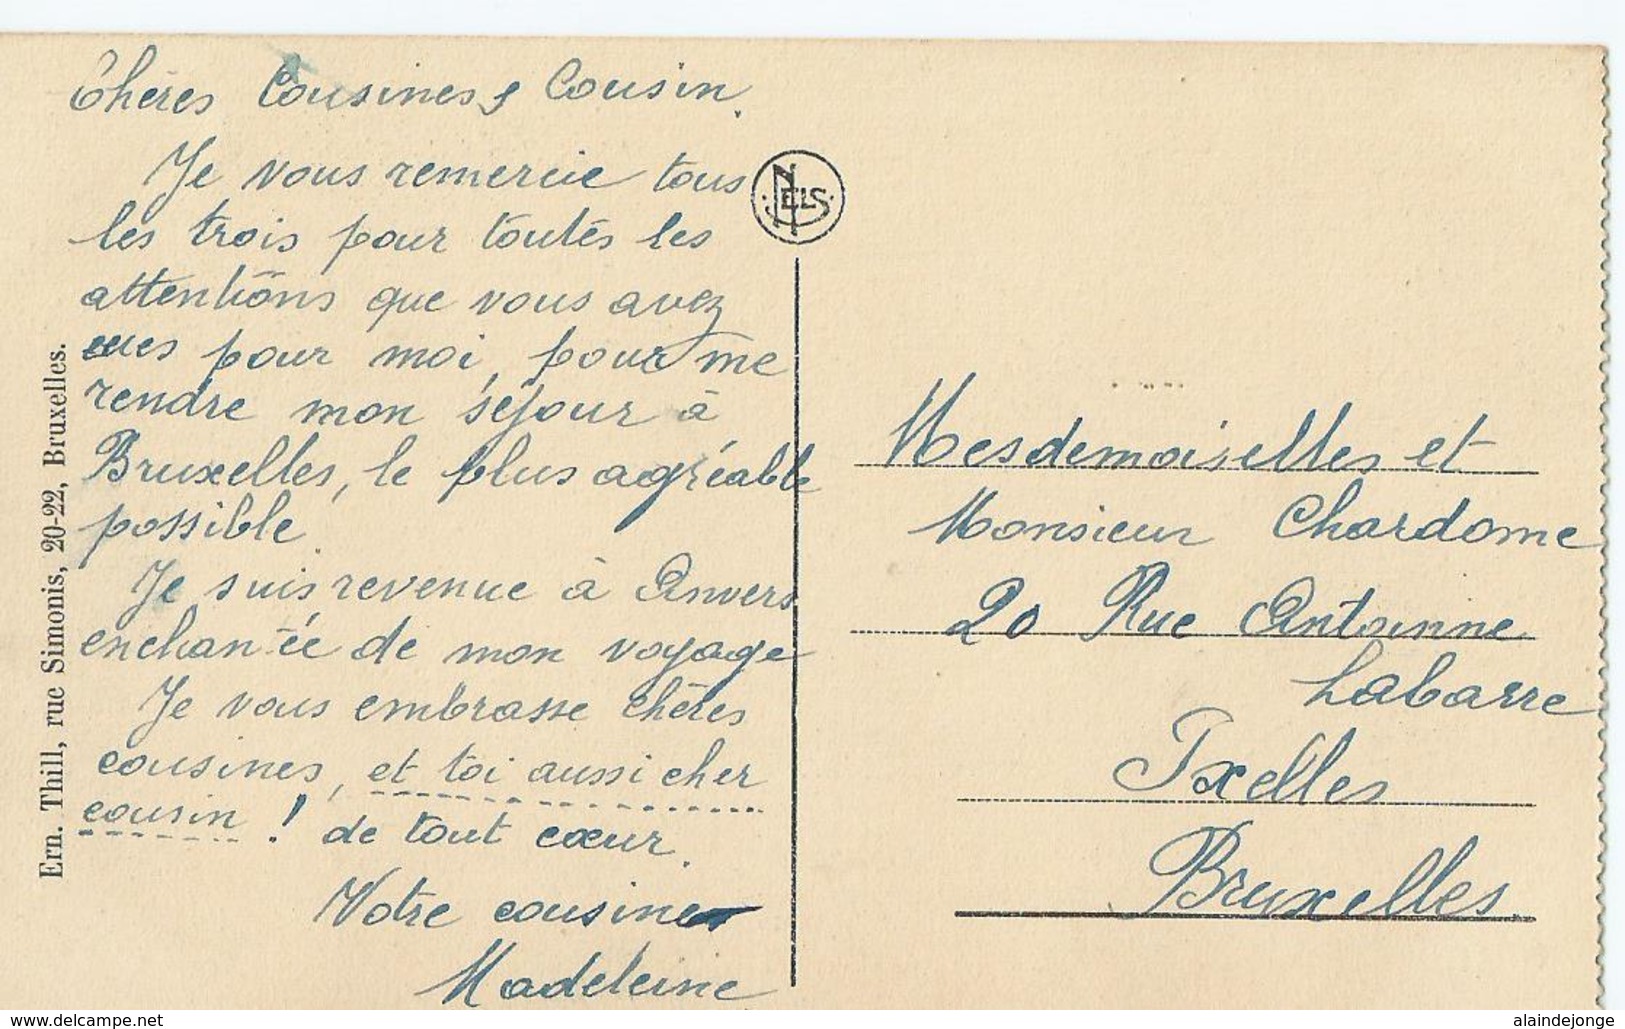 Chères Cousines & Cousin.
Je vous remercie tous
les trois pour toutes les
attentions que vous avez
eues pour moi, pour me
rendre mon séjour à
Bruxelles, le plus agréable
possible.
Je suis revenue à Anvers
enchantée de mon voyage
Je vous embrasse chères
cousines, et toi aussi cher
cousin ! de tout cœur.
Votre cousine
Madeleine
Ern. Thill, rue Simonis, 20-22, Bruxelles.
NELS
Mesdemoiselles et
Monsieur Chardome
20 Rue Antoinne
Labarre
Ixelles
Bruxelles.
delcampe.net
alaindejonge